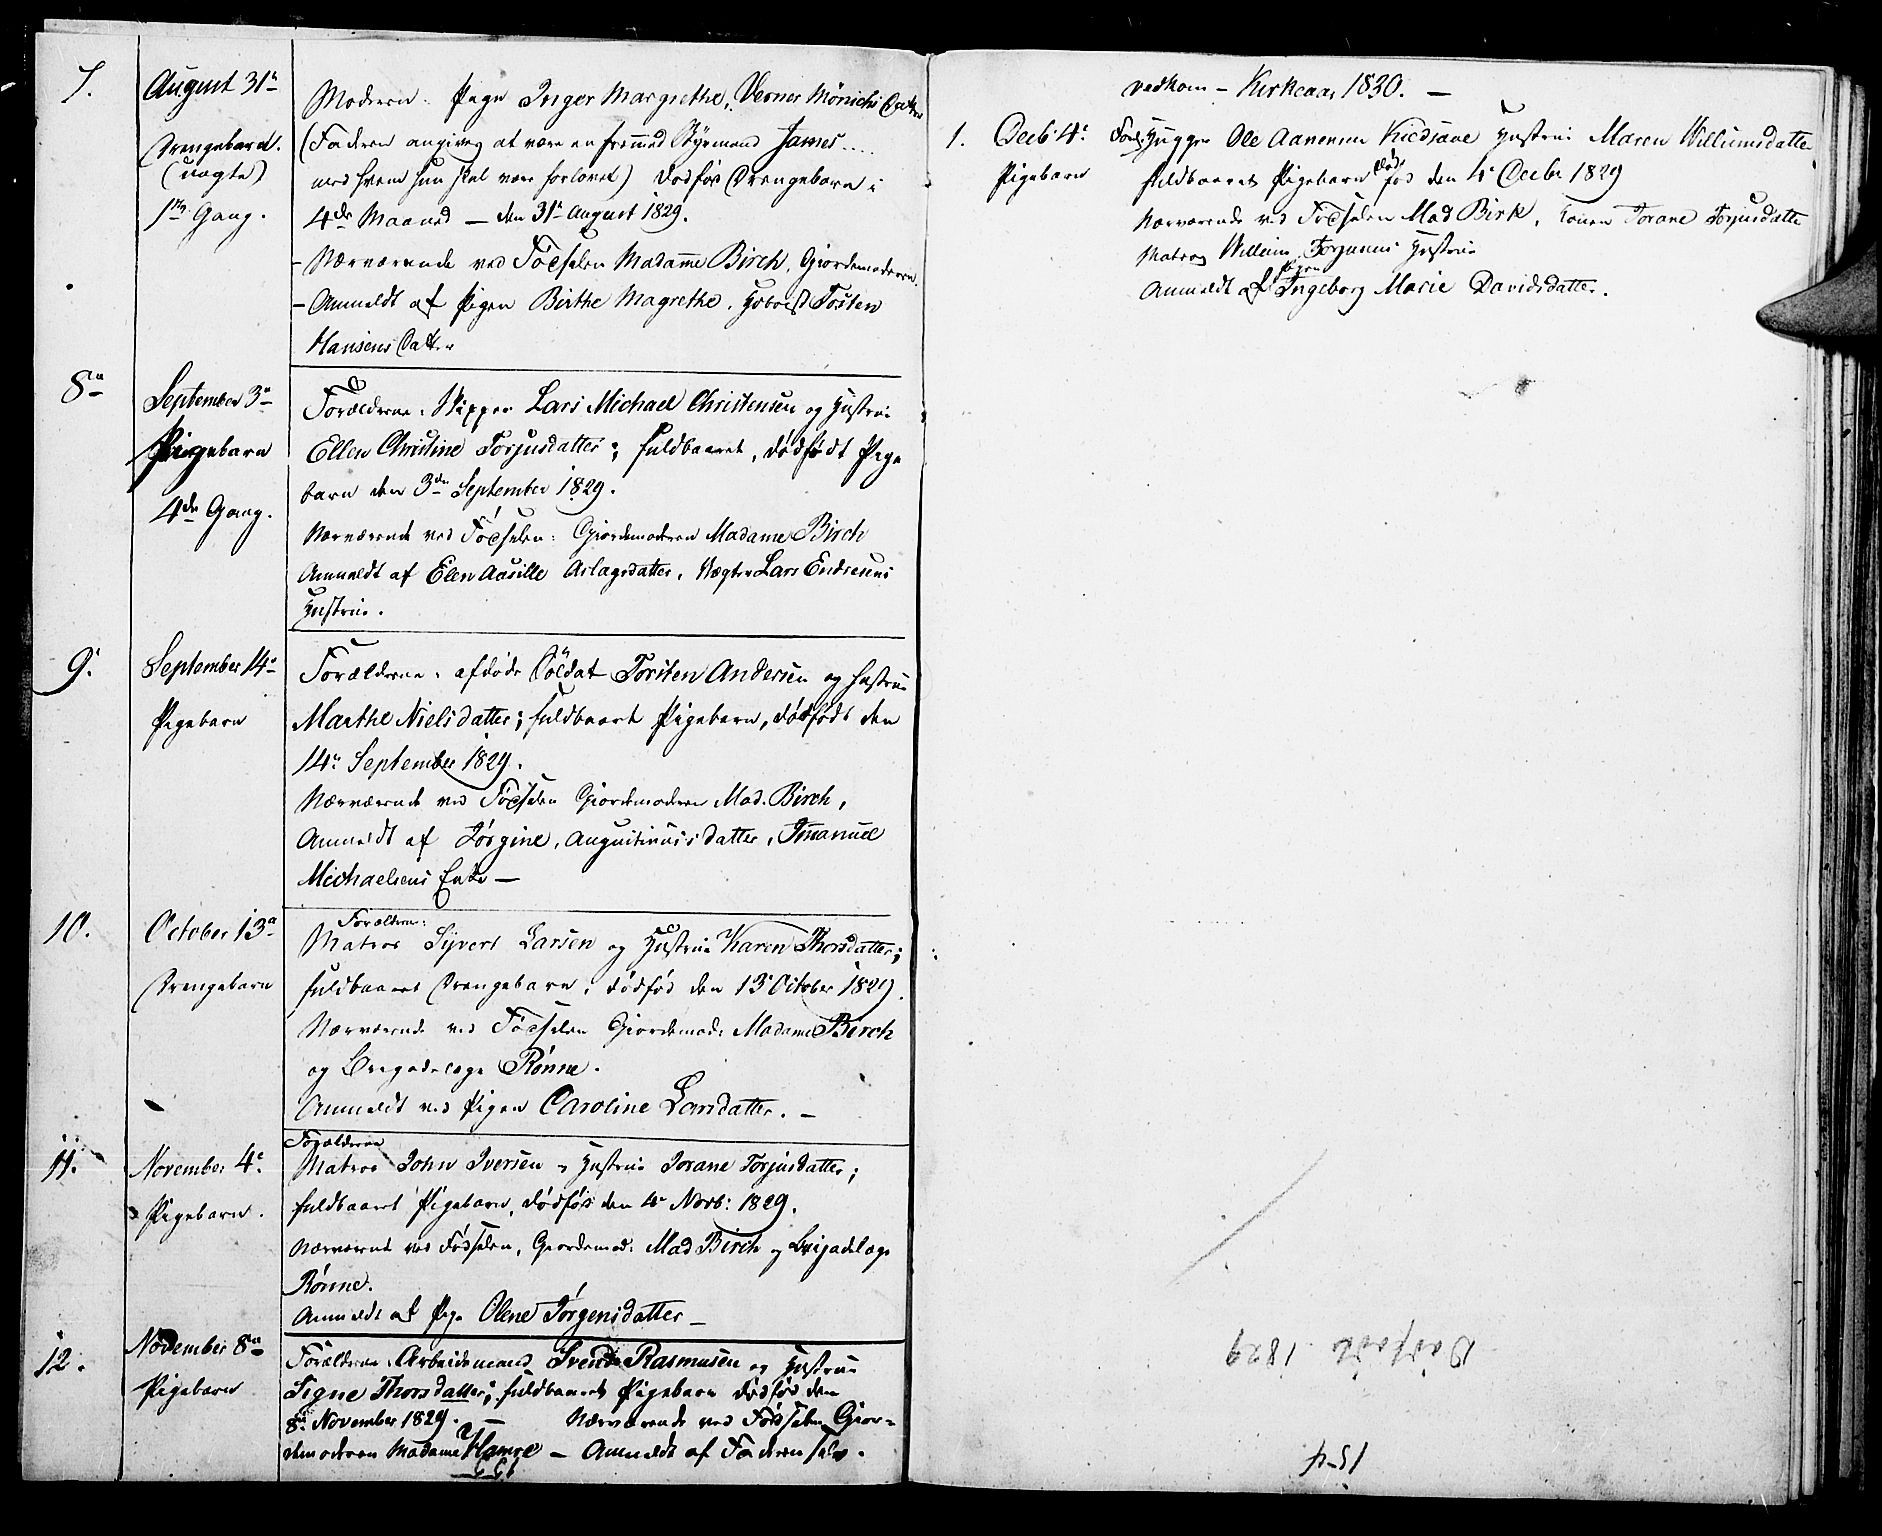 7.
August 31te
Drengebarn.
(uægte)
1ste Gang.
Moderen: Pige Inger Margrethe, Verner Mönichs Datter
(Faderen angives at være en fremmed Styrmand James ....
med hvem hun skal være forlovet) dødfødt Drengebarn i
4de Maaned — den 31te August 1829.
- Nærværende ved Födselen Madame Birch, Giordemoderen.
- Anmeldt af Pigen Birthe Magrethe, Tosten
Hansens Datter
8de
September 3de
Pigebarn
4de Gang.
Forælderne: Skipper Lars Michael Christensen og Hustrue
Ellen Christine Torjusdatter; fuldbaaret, dødfødt Pige
barn den 3de September 1829.
Nærværende ved Födselen: Giordemoderen Madame Birch
Anmeldt af Elen Aasille Aslagsdatter, Vægter Lars Endresens
Hustrue.
9.
September 14de
Pigebarn
Forælderne: afdøde Soldat Torsten Andersen og Hustrue
Marthe Nielsdatter; fuldbaaret Pigebarn, dødfødt den
14de September 1829.
Nærværende ved Födselen Giordemoderen Mad. Birch,
Anmeldt af Jørgine, Augustinusis datter, Imanuel
Michaelsens Enke —
10.
October 13de
Drengebarn
Forælderne:
Matros Syvert Larsen og Hustrue Karen Thorsdatter;
fuldbaaret Drengebarn, dødfød den 13 October 1829.
Nærværende ved Födselen Giordemod: Madame Birch
og Brigadelæge Rønne.
Anmeldt ved Pigen Caroline Larsdatter. —
11.
November 4de
Pigebarn.
Forælderne
Matros John Iversen og Hustrue Jorane Torjusdatter;
fuldbaaret Pigebarn, dødfød den 4de Novb: 1829.
Nærværende ved Födselen, Giordemod: Mad Birch og Brigadelæge
Rönne.
Anmeldt af Pige Olene Jörgensdatter —
12.
November 8de
Pigebarn
Forælderne: Arbeidsmand Svend Rasmusen og Hustrue
Signe Thorsdatter; fuldbaaret Pigebarn dødfød den
8de November 1829. — Nærværende ved Födselen Gior-
demoderen Madame Hamre — Anmeldt af Faderen selv.
vedkom - Kirkeaar 1830. —
1.
Decb: 4de
Pigebarn
Ole Aanensen Hustrue Maren Williumsdatter
fuldbaaret Pigebarn død fød den 4 Decbr 1829
Nærværende ved Födselen Mad Birk, Konen Jorane Torjusdatter
Matros Willum Torjusens Hustrue
Anmeldt af Pigen Ingeborg Marie Davidsdatter.
Dødfødte 1829